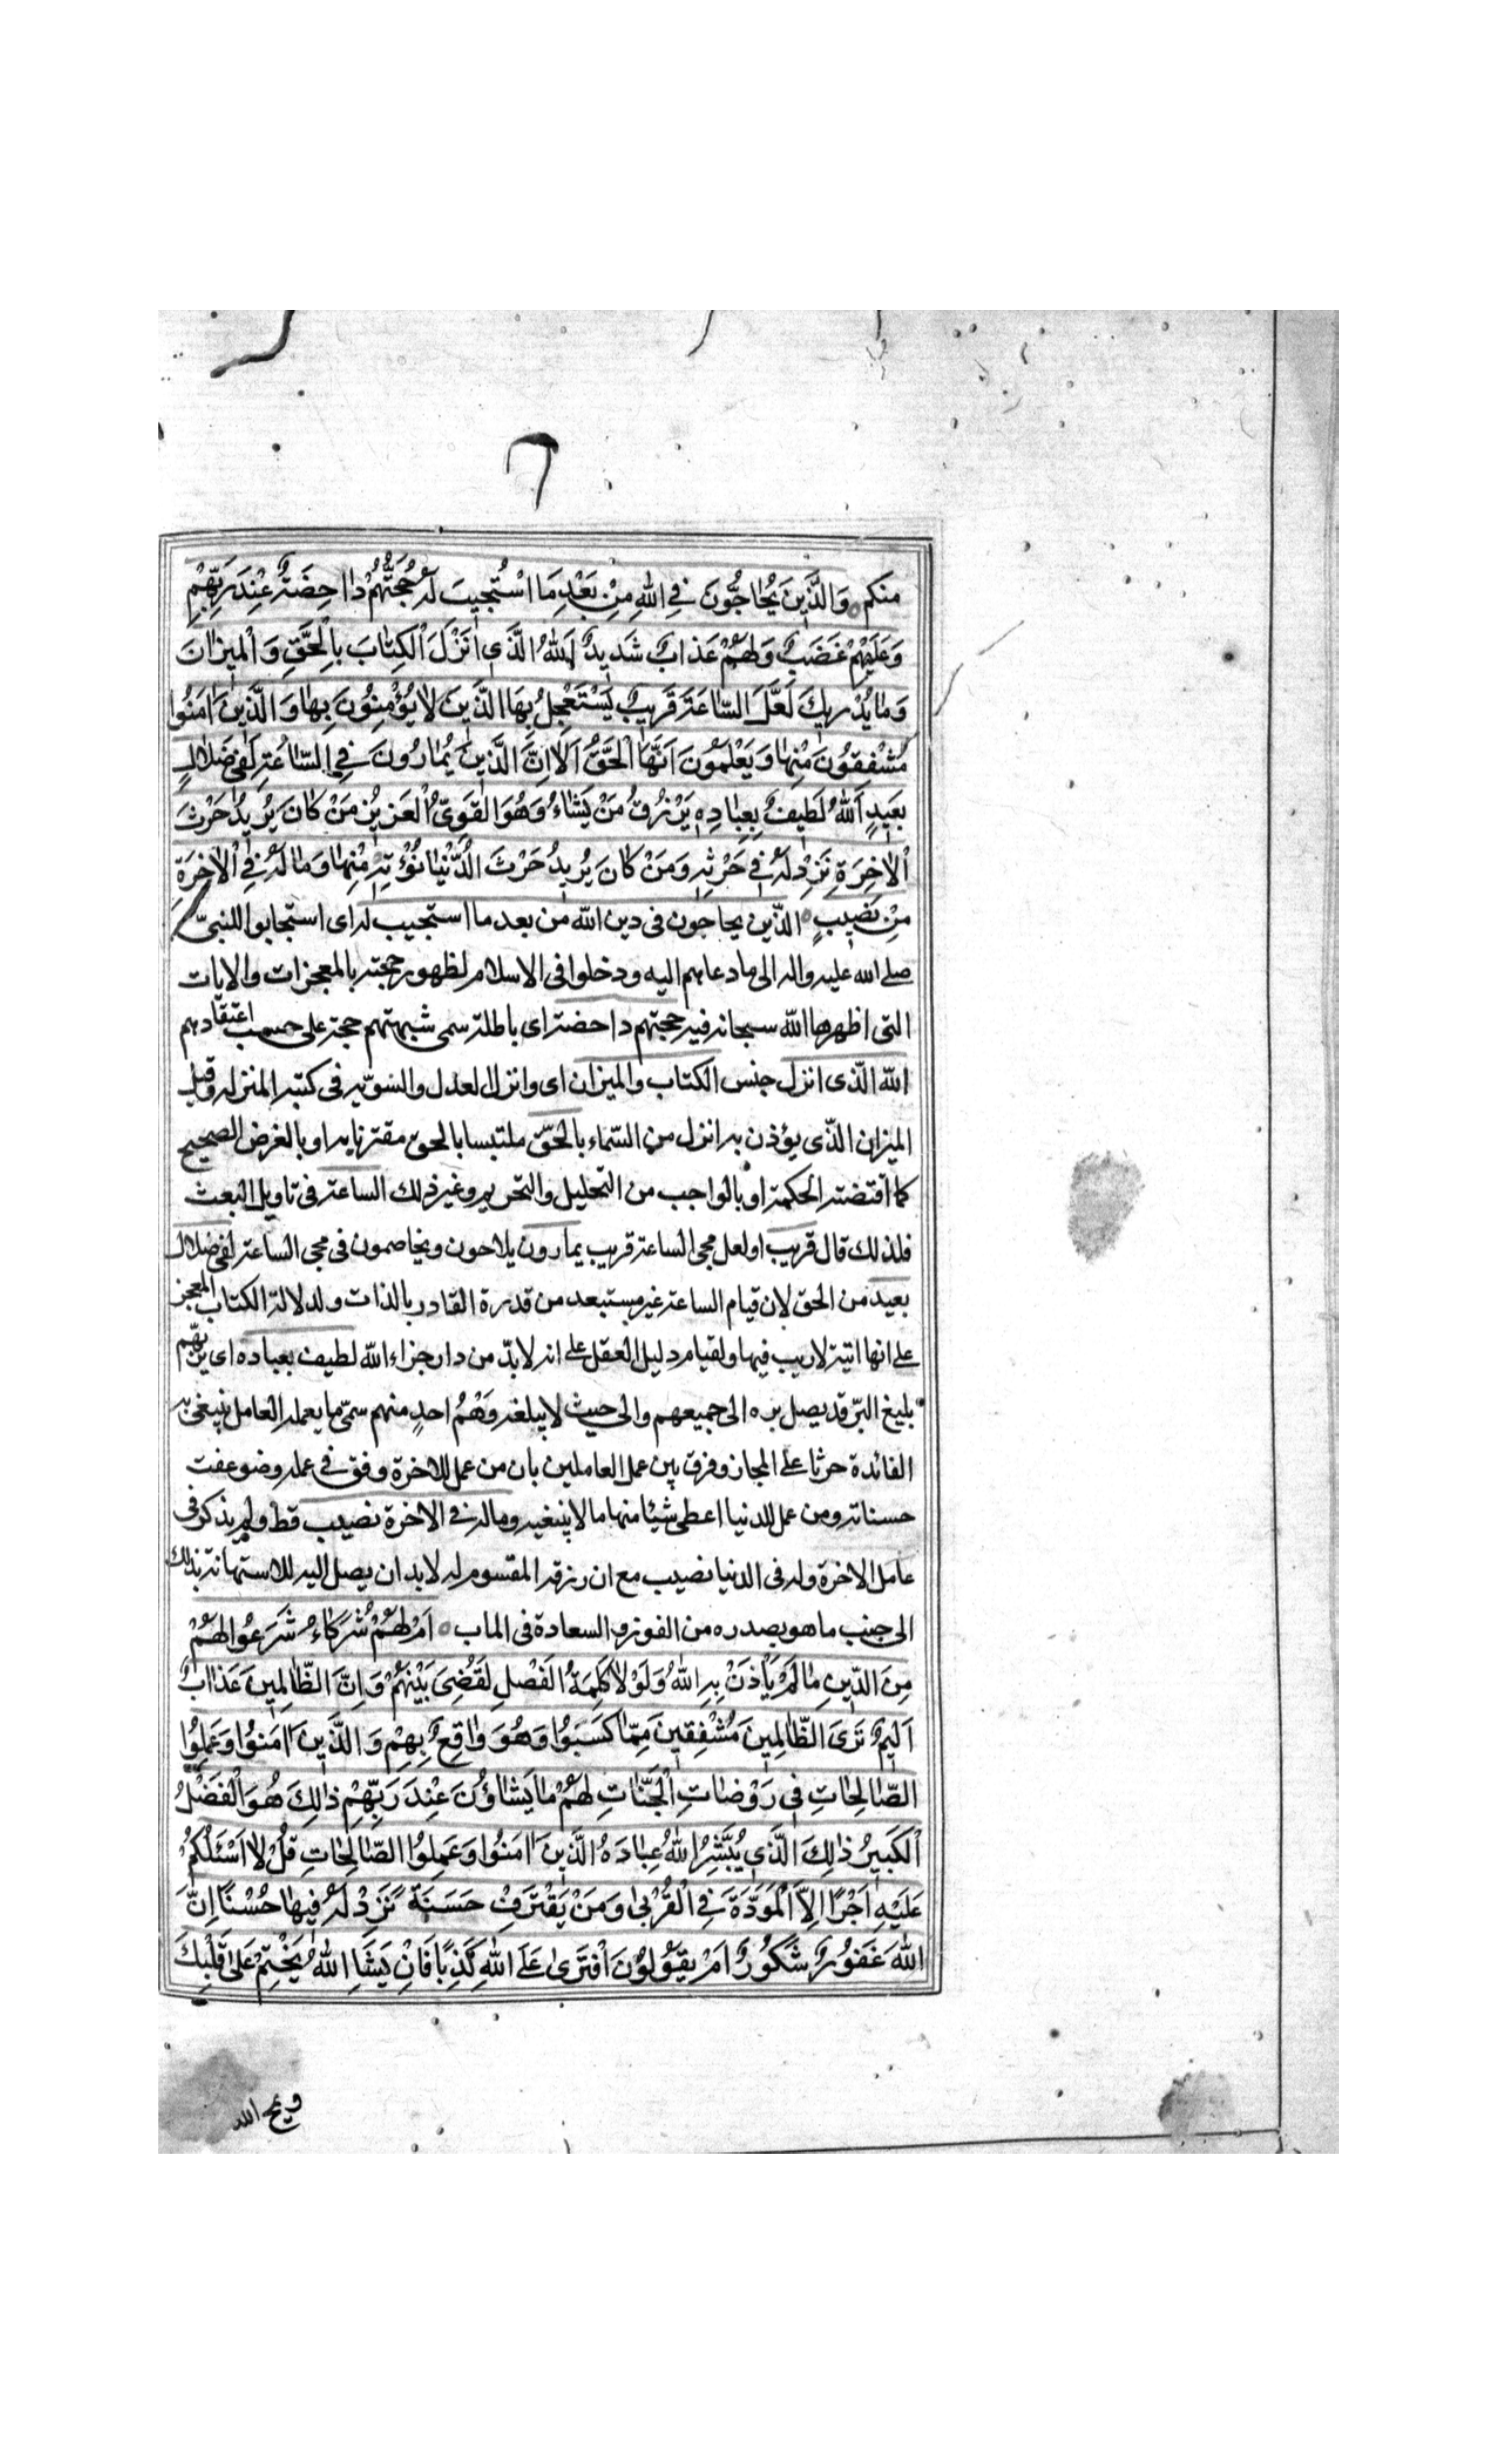 ٦
منكم وَالَّذِينَ يُحاجُّونَ فِي اللهِ مِنْ بَعْدِ مَا اسْتُجِيبَ لَهُ حُجَّتُهُمْ داحِضَةٌ عِنْدَ رَبِّهِمْ
وَعَلَيْهِمْ غَضَبٌ وَلَهُمْ عَذابٌ شَدِيدٌ اَللهُ الَّذي اَنْزَلَ الْكِتابَ بِالْحَقِّ وَالْمِيزانَ
وَما يُدْرِيكَ لَعَلَّ السّاعَةَ قَرِيبٌ يَسْتَعْجِلُ بِهَا الَّذِينَ لا يُؤْمِنُونَ بِها وَالَّذِينَ امَنُوا
مُشْفِقُونَ مِنْها وَيَعْلَمُونَ اَنَّهَا الْحَقُّ اَلا اِنَّ الَّذِينَ يُمارُونَ فِي السّاعَةِ لَفي ضَلالٍ
بَعِيدٍ اَللهُ لَطِيفٌ بِعِبادِهِ يَرْزُقُ مَنْ يَشاءُ وَهُوَ الْقَوِيُّ الْعَزِيزُ مَنْ كانَ يُرِيدُ حَرْثَ
الْاخِرَةِ نَزِدْ لَهُ في حَرْثِهِ وَمَنْ كانَ يُرِيدُ حَرْثَ الدُّنْيا نُؤْتِهِ مِنْها وَما لَهُ فِي الْاخِرَةِ
مِنْ نَصِيبٍ الذّين يحاجون فى دين الله من بعد ما استجيب له اى استجابوا للنبىّ
صلى الله عليه واله الى ما دعاهم اليه ودخلوا فى الاسلام لظهور حجته بالمعجزات والايات
التى اظهرها الله سبحانه فيه حجتهم داحضة اى باطلة سمى شبهتهم حجة على حسب اعتقادهم
الله الذى انزل جنس الكتاب والميزان اى وانزل العدل والسّويه فى كتبه المنزله وقيل
الميزان الذّى يؤذن به انزل من السّماء بالحقّ ملتبسا بالحق مقترنا به او بالغرض الصحيح
كما اقتضته الحكمة او بالواجب من التحليل والتحريم وغير ذلك الساعة فى تاويل البعث
فلذلك قال قريب او لعل مجى الساعة قريب يمارون يلاحون ويخاصمون فى مجى الساعة لفى ضلال
بعيد من الحق لان قيام الساعة غير مستبعد من قدرة القادر بالذات ولدلالة الكتاب المعجز
على انها اتية لاريب فيها ولقيام دليل العقل على انه لابدّ من دار جزاء الله لطيف بعباده اى بربّهم
بليغ البرّ قد يصل بره الى جميعهم والى حيث لا يبلغه وَهْمُ احدٍ منهم سمّى ما يعمله العامل يبتغى به
الفائدة حرثا على المجاز وفرق بين عمل العاملين بان من عمل للاخرة وفق فى عمله وضوعفت
حسناته ومن عمل للدنيا اعطى شيئا منها ما لا يبتغيه وماله فى الاخرة نصيب قط ولم يذكر فى
عامل الاخرة وله فى الدنيا نصيب مع ان رزقه المقسوم له لابد ان يصل اليه للاستهانة بذلك
الى جنب ما هو بصدره من الفوز والسعادة فى الماب اَمْ لَهُمْ شُرَكاءُ شَرَعُوا لَهُمْ
مِنَ الدّينِ ما لَمْ يَأْذَنْ بِهِ اللهُ وَلَوْلا كَلِمَةُ الْفَصْلِ لَقُضِيَ بَيْنَهُمْ وَاِنَّ الظّالِمِينَ عَذابٌ
اَلِيمٌ تَرَى الظّالِمِينَ مُشْفِقِينَ مِمّا كَسَبُوا وَهُوَ واقِعٌ بِهِمْ وَالَّذِينَ امَنُوا وَعَمِلُوا
الصّالِحاتِ في رَوْضاتِ الْجَنّاتِ لَهُمْ ما يَشاؤُنَ عِنْدَ رَبِّهِمْ ذالِكَ هُوَ الْفَضْلُ
الْكَبِيرُ ذالِكَ الَّذي يُبَشِّرُ اللهُ عِبادَهُ الَّذِينَ امَنُوا وَعَمِلُوا الصّالِحاتِ قُلْ لا اَسْئَلُكُمْ
عَلَيْهِ اَجْرًا اِلاَّ الْمَوَدَّةَ فِي الْقُرْبى وَمَنْ يَقْتَرِفْ حَسَنَةً نَزِدْ لَهُ فِيها حُسْنًا اِنَّ
اللهَ غَفُورٌ شَكُورٌ اَمْ يَقُولُونَ افْتَرى عَلَى اللهِ كَذِبًا فَاِنْ يَشَاِ اللهُ يَخْتِمْ عَلى قَلْبِكَ
ويمح الله